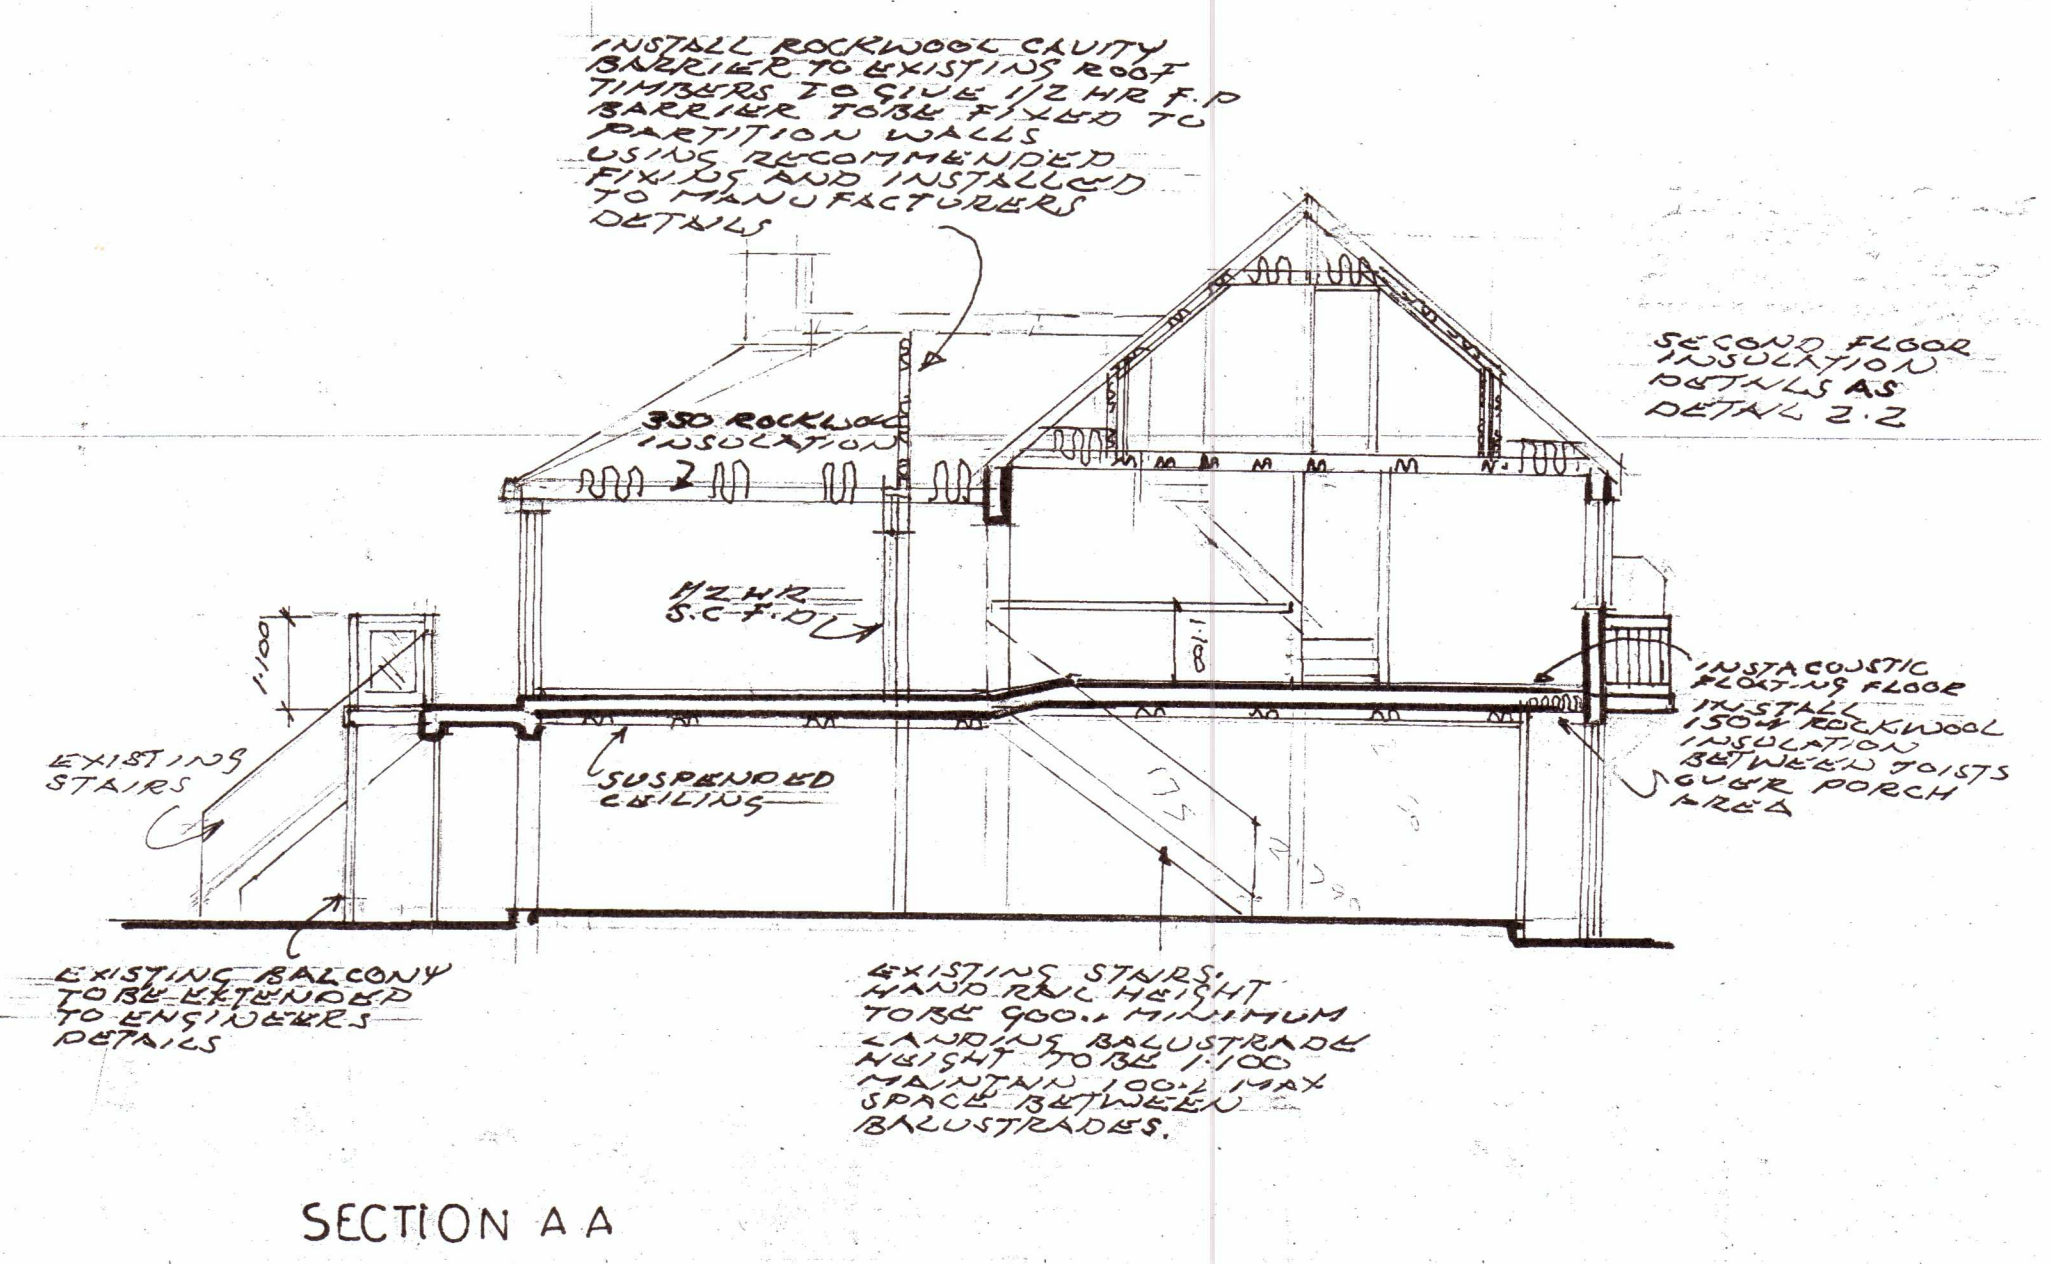 INSTALL ROCKWOOL CAVITY
BARRIER TO EXISTING ROOF
TIMBERS TO GIVE 1/2 HR F.P
BARRIER TO BE FIXED TO
PARTITION WALLS
USING RECOMMENDED
FIXING AND INSTALLED
TO MANUFACTURERS
DETAILS
SECOND FLOOR
INSULATION
DETAILS AS
DETAIL 2.2
350 ROCKWOOL
INSULATION
1/2 HR
S.C.F.D
1.100
1.18
INSTACOUSTIC
FLOATING FLOOR
INSTALL
150M ROCKWOOL
INSULATION
BETWEEN JOISTS
OVER PORCH
AREA
EXISTING
STAIRS
SUSPENDED
CEILING
175
EXISTING BALCONY
TO BE EXTENDED
TO ENGINEERS
DETAILS
EXISTING STAIRS.
HAND RAIL HEIGHT
TO BE 900.. MINIMUM
LANDING BALUSTRADE
HEIGHT TO BE 1.100
MAINTAIN 100.. MAX
SPACE BETWEEN
BALUSTRADES.
SECTION A A